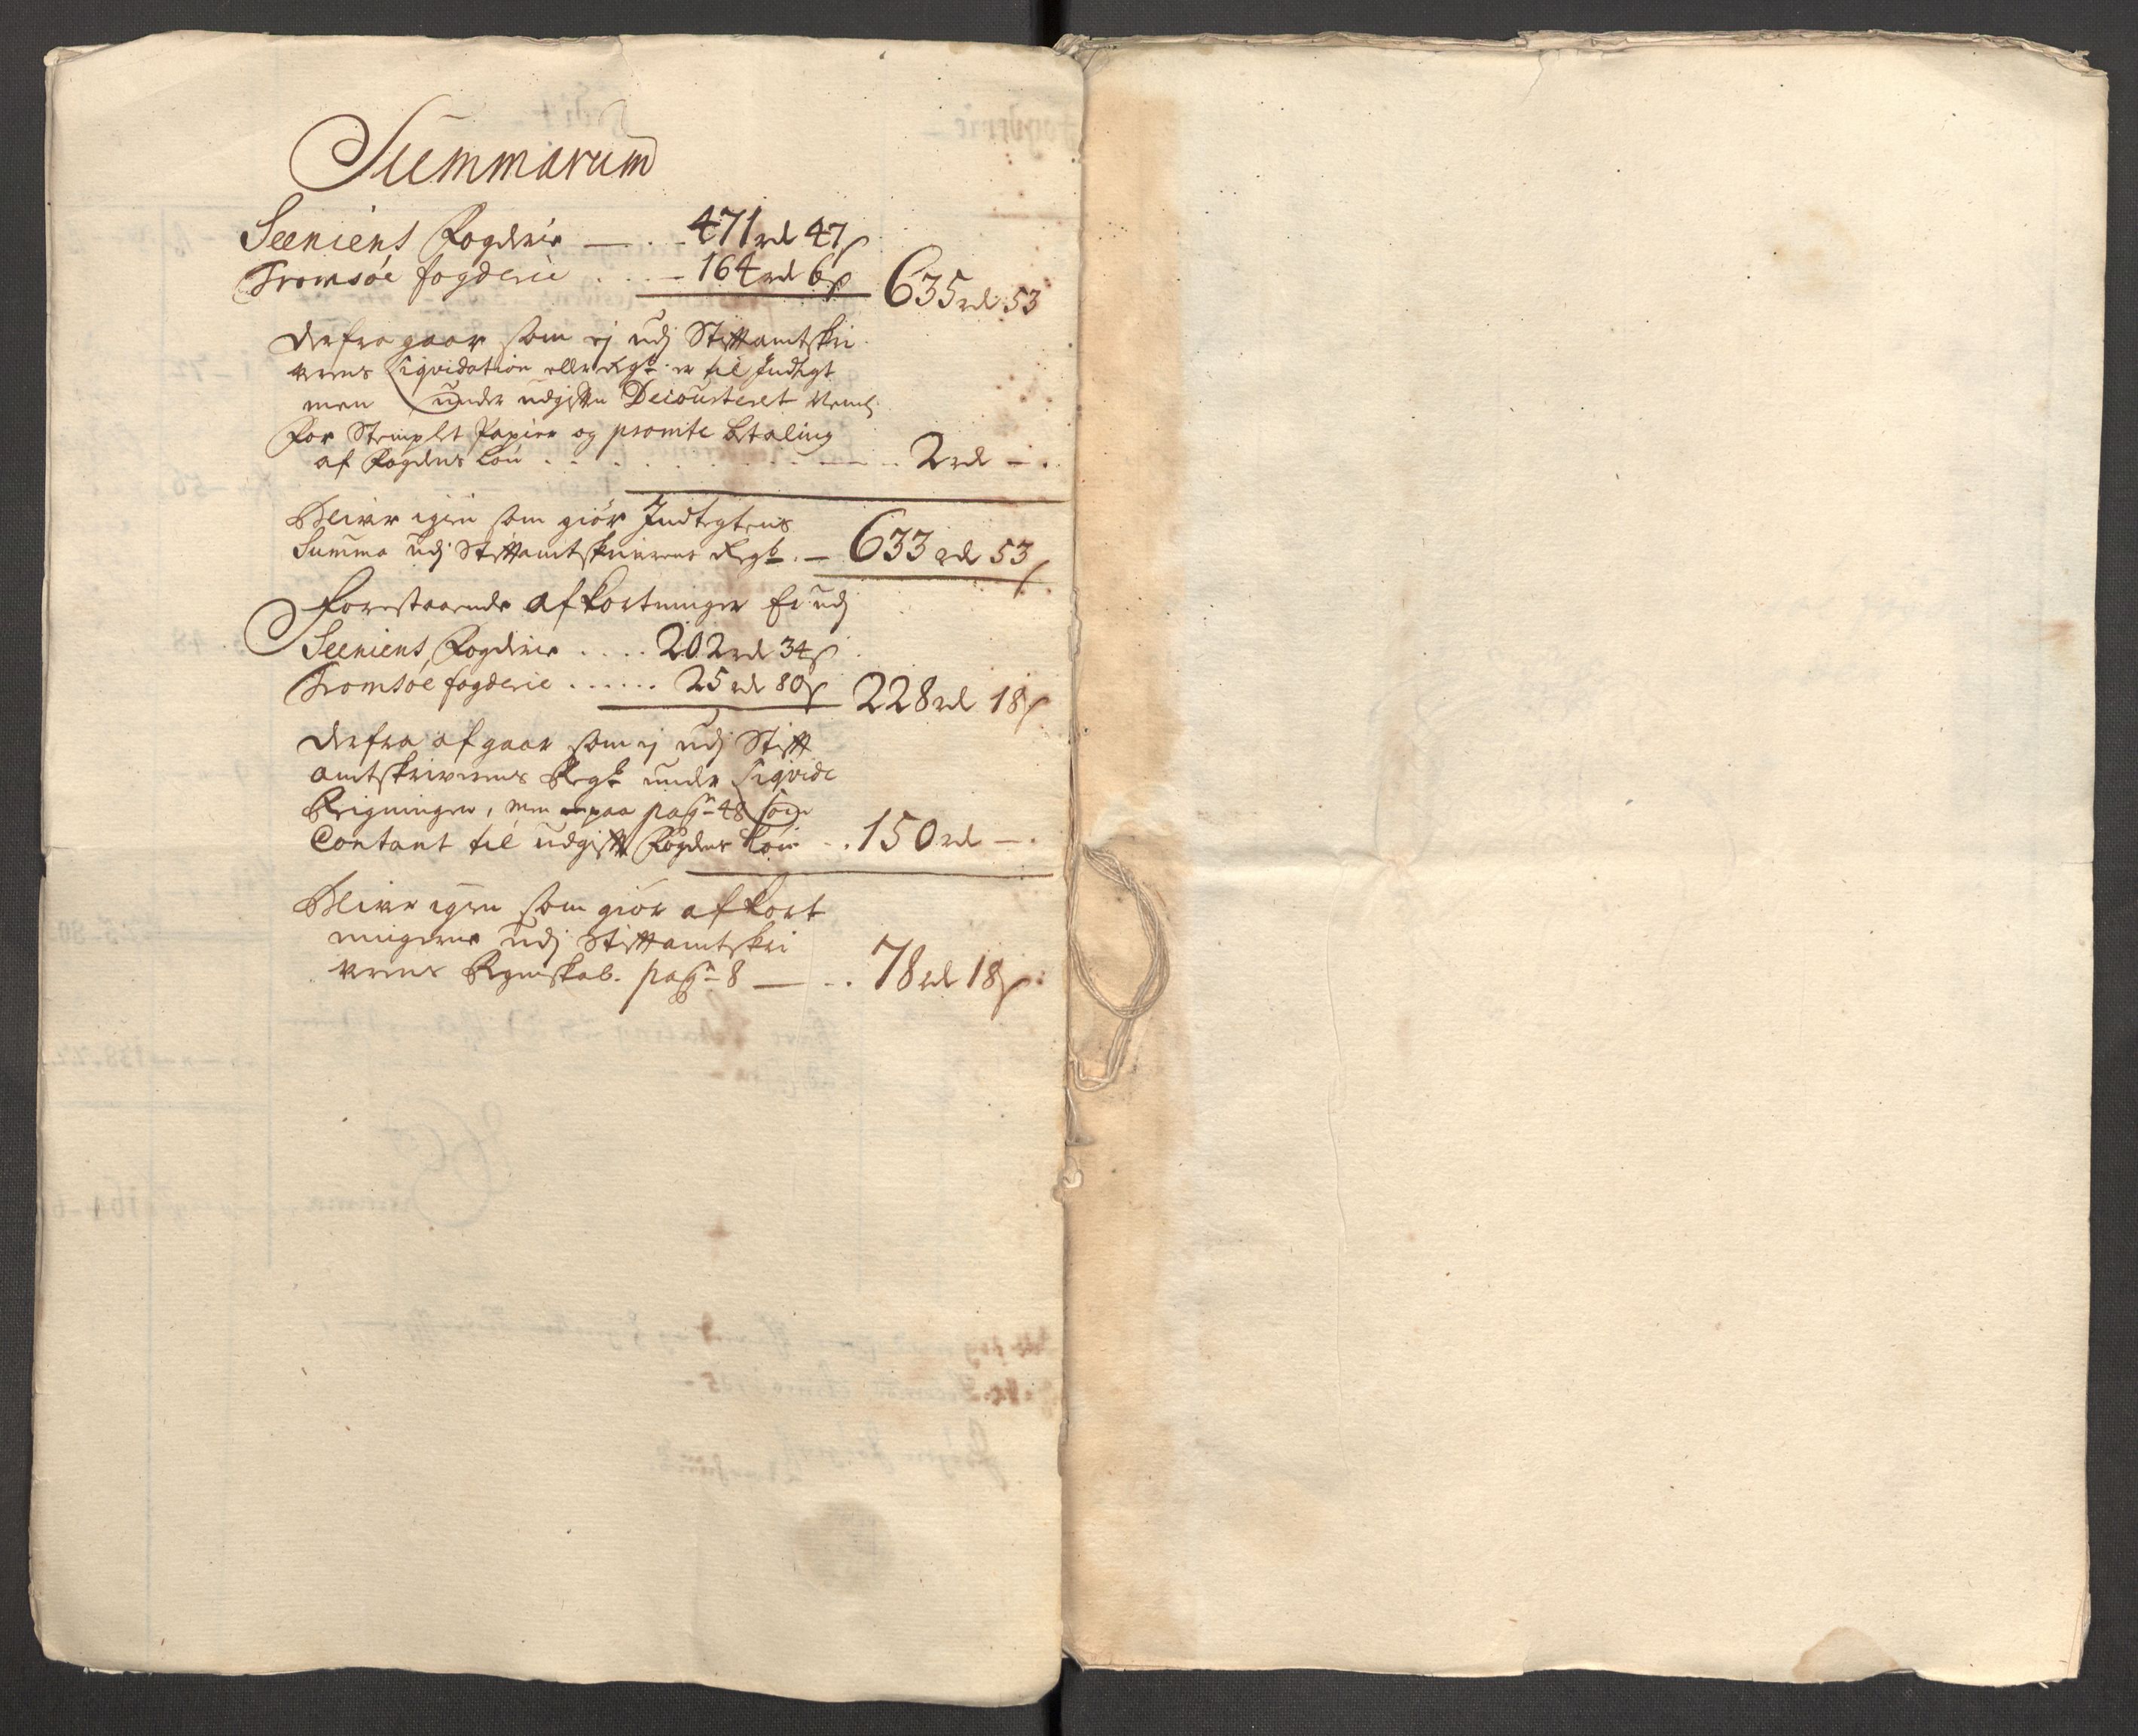 Summarum
Seeniens Fogderie — . - 471 rd 47 s
Tromsöe fogderie . . . - 164 rd 6 s 635 rd 53
Derfra gaar som ej udj Stiftamtskri
verens Liqvidation eller Regsk: er til Indtegt
men under udgiften Decourteret Neml:
for Stemplet Papier og promte betaling
af Fogdens Lön . . . . . . . — . . 2 rd — .
Bliver igien som giör Indtegtens
Summa udj Stiftamtskriverens Regsk . — 633 rd 53 s
Forestaaende Afkortninger Er udj
Seeniens Fogderie . . . . 202 rd 34 s
Tromsöe fogderie . . . . . . 25 rd 80 s 228 rd 18 s
Derfra afgaar som ej udj Stift
amtskriverens Regsk under Liqvide
Reigningen, men paa pag: 48 som
Contant til udgift Fogdens Lön . . 150 rd — .
Bliver igien som giör afkort
ningerne udj Stiftamtskri
verens Regnskab. pag: 8 — . . 78 rd 18 s